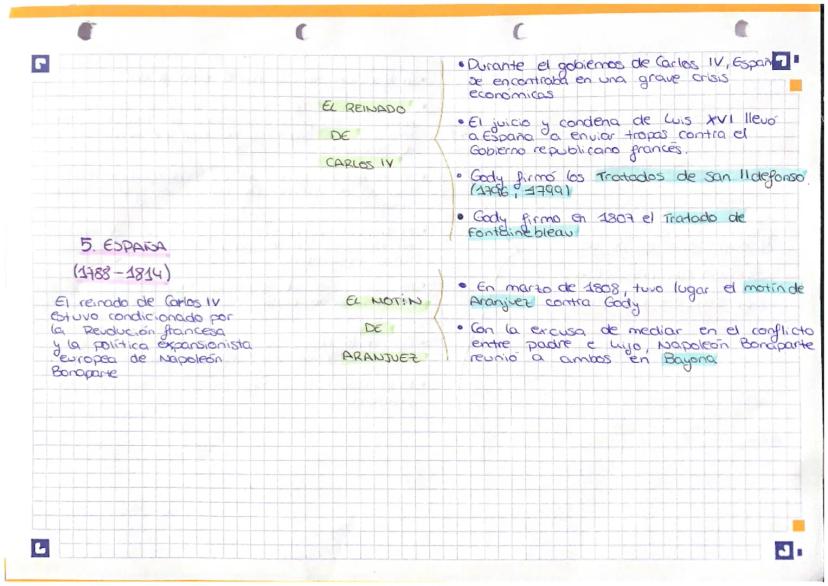 5. ESPAÑA
(1788-1814)
El reinado de Carlos IV
estuvo condicionado por
la Revolución francesa
y la política expansionista
europea de Napoleón
Bonaparte
EL REINADO
DE
CARLOS IV
• Durante el gobiernos de Carlos IV, España
se encontraba en una grave crisis
económicas
• El juicio y condena de Luis XVI llevó
a España a enviar tropas contra el
Gobierno republicano francés.
• Gody firmó los Tratados de San Ildefonso.
(1796, 1799)
• Gody firmo en 1807 el Tratado de
Fontainebleau
EL MOTÍN
DE
ARANJUEZ
• En marzo de 1808, tuvo lugar el motín de
Aranjuez contra Gody
• Con la excusa de mediar en el conflicto
entre padre e hijo, Napoleón Bonaparte
reunió a ambos en Bayona